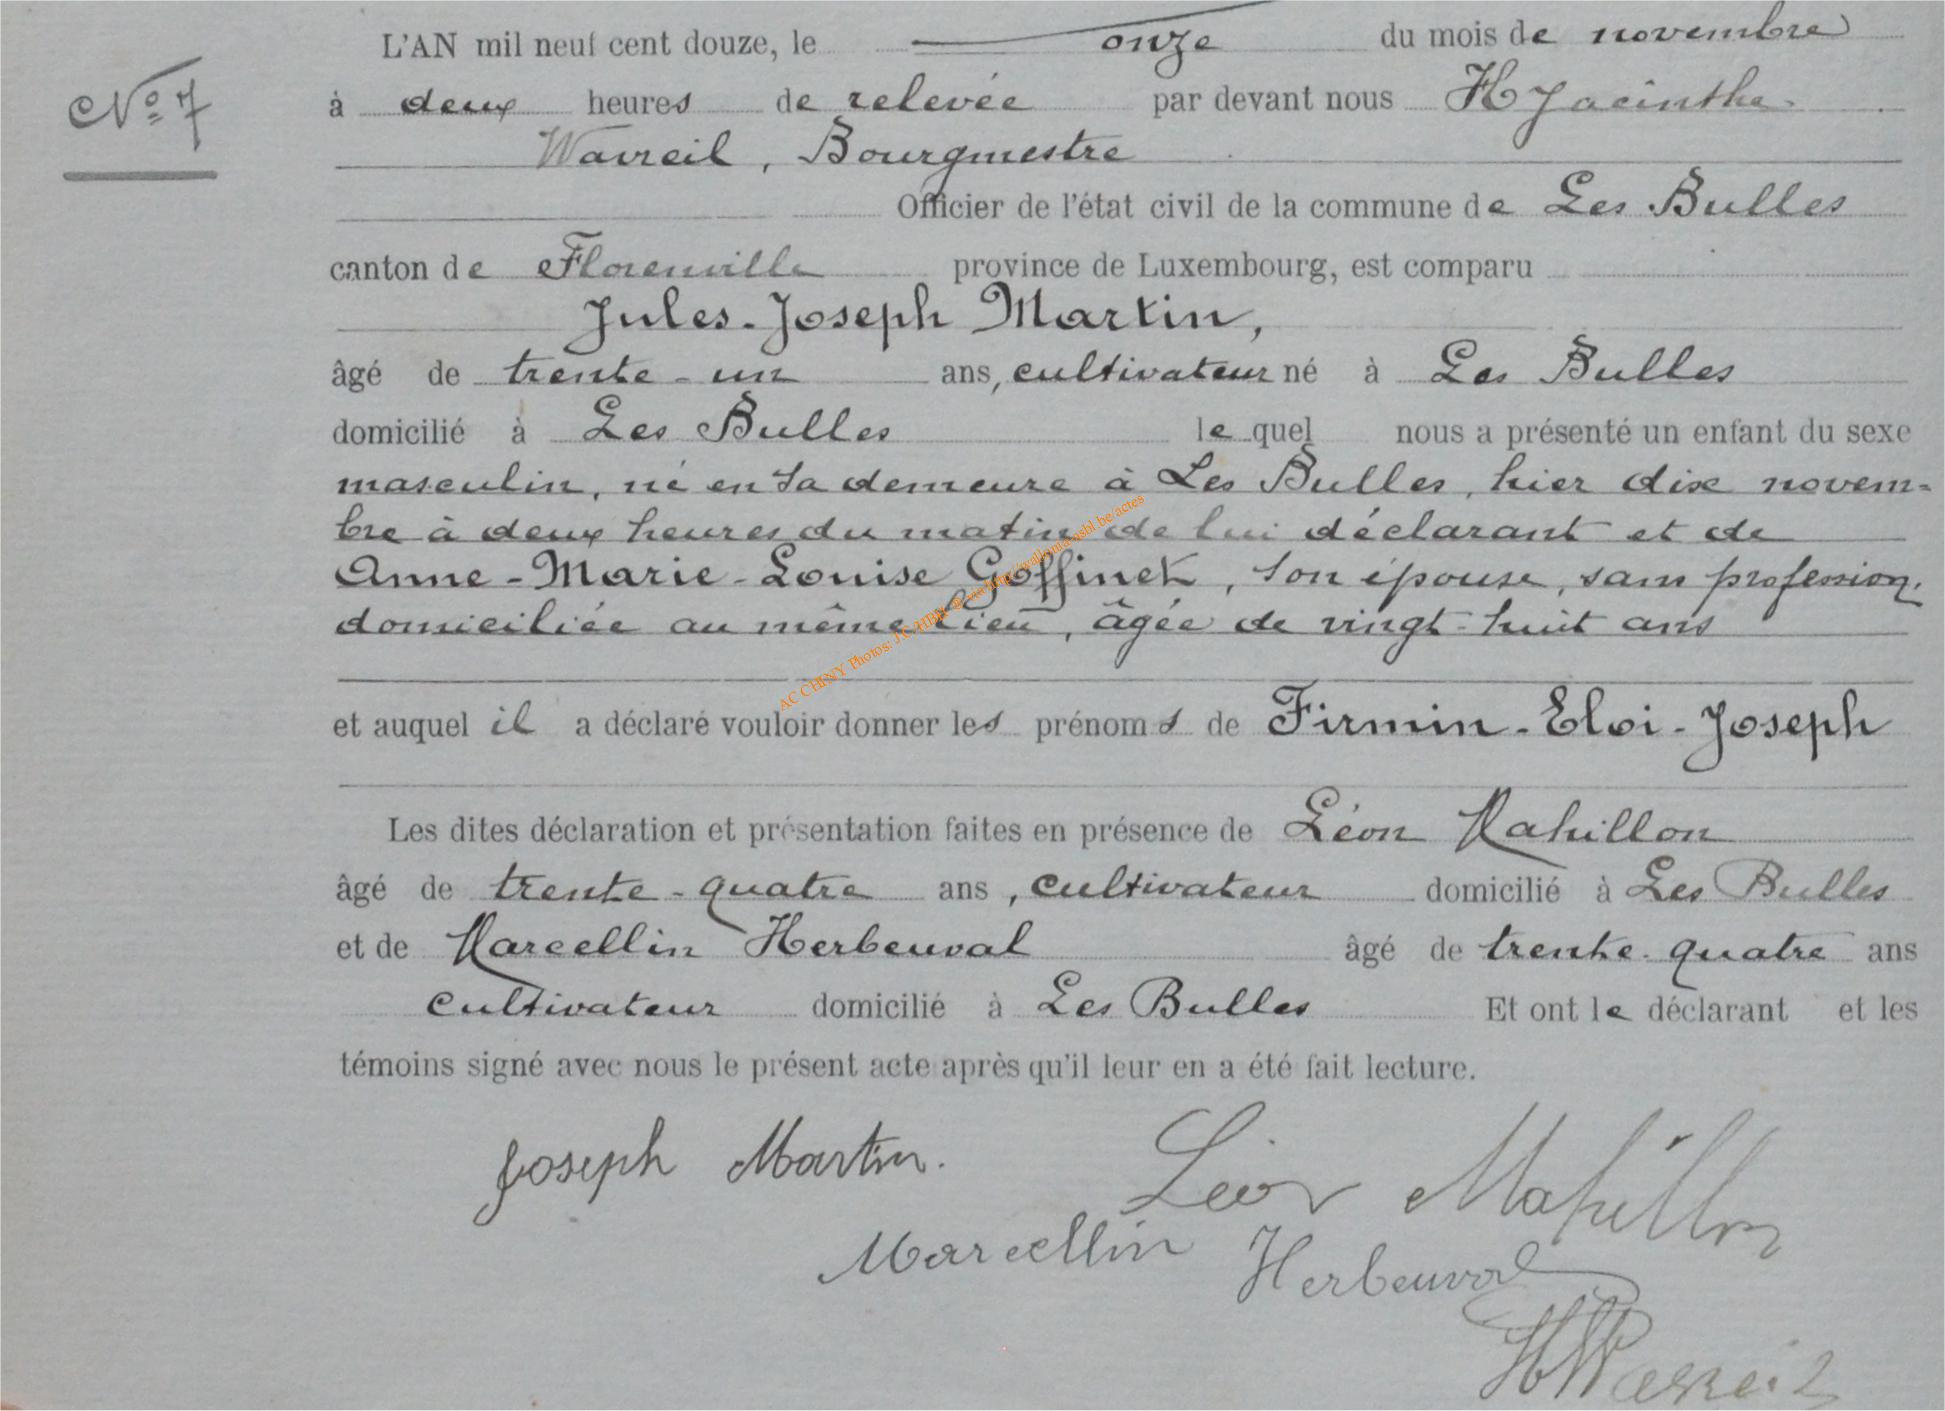 L'AN mil neuf cent douze, le onze du mois de novembre
N° 7
à deux heures de relevée par devant nous Hyacinthe
Wavreil, Bourgmestre
Officier de l'état civil de la commune de Les Bulles
canton de Florenville province de Luxembourg, est comparu
Jules-Joseph Martin,
âgé de trente-un ans, cultivateur né à Les Bulles
domicilié à Les Bulles lequel nous a présenté un enfant du sexe
masculin, né en sa demeure à Les Bulles, hier dix novem=
bre à deux heures du matin de lui déclarant et de
Anne-Marie-Louise Goffinet, son épouse, sans profession,
domiciliée au même lieu, âgée de vingt-huit ans
AC CHINY Photos: J.C. HBX
et auquel il a déclaré vouloir donner les prénoms de Firmin-Eloi-Joseph
Les dites déclaration et présentation faites en présence de Léon Mahillon
âgé de trente-quatre ans, cultivateur domicilié à Les Bulles
et de Marcellin Herbeuval âgé de trente-quatre ans
cultivateur domicilié à Les Bulles Et ont le déclarant et les
témoins signé avec nous le présent acte après qu'il leur en a été fait lecture.
Joseph Martin. Léon Mahillon
Marcellin Herbeuval
HWavreil